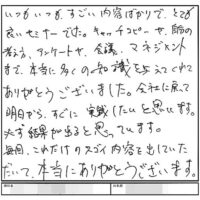 いつもいつも、すごい内容ばかりで、とても
良いセミナーでした。キャッチコピーや、師の
考え方、アンケートや、会議、マネジメント
まで、本当に多くの知識を与えてくれて
ありがとうございました。会社に戻って
明日から、すぐに実践したいと思います。
必ず結果が出ると思っています。
毎回、これだけのスゴイ内容を出していた
だいて、本当にありがとうございます。